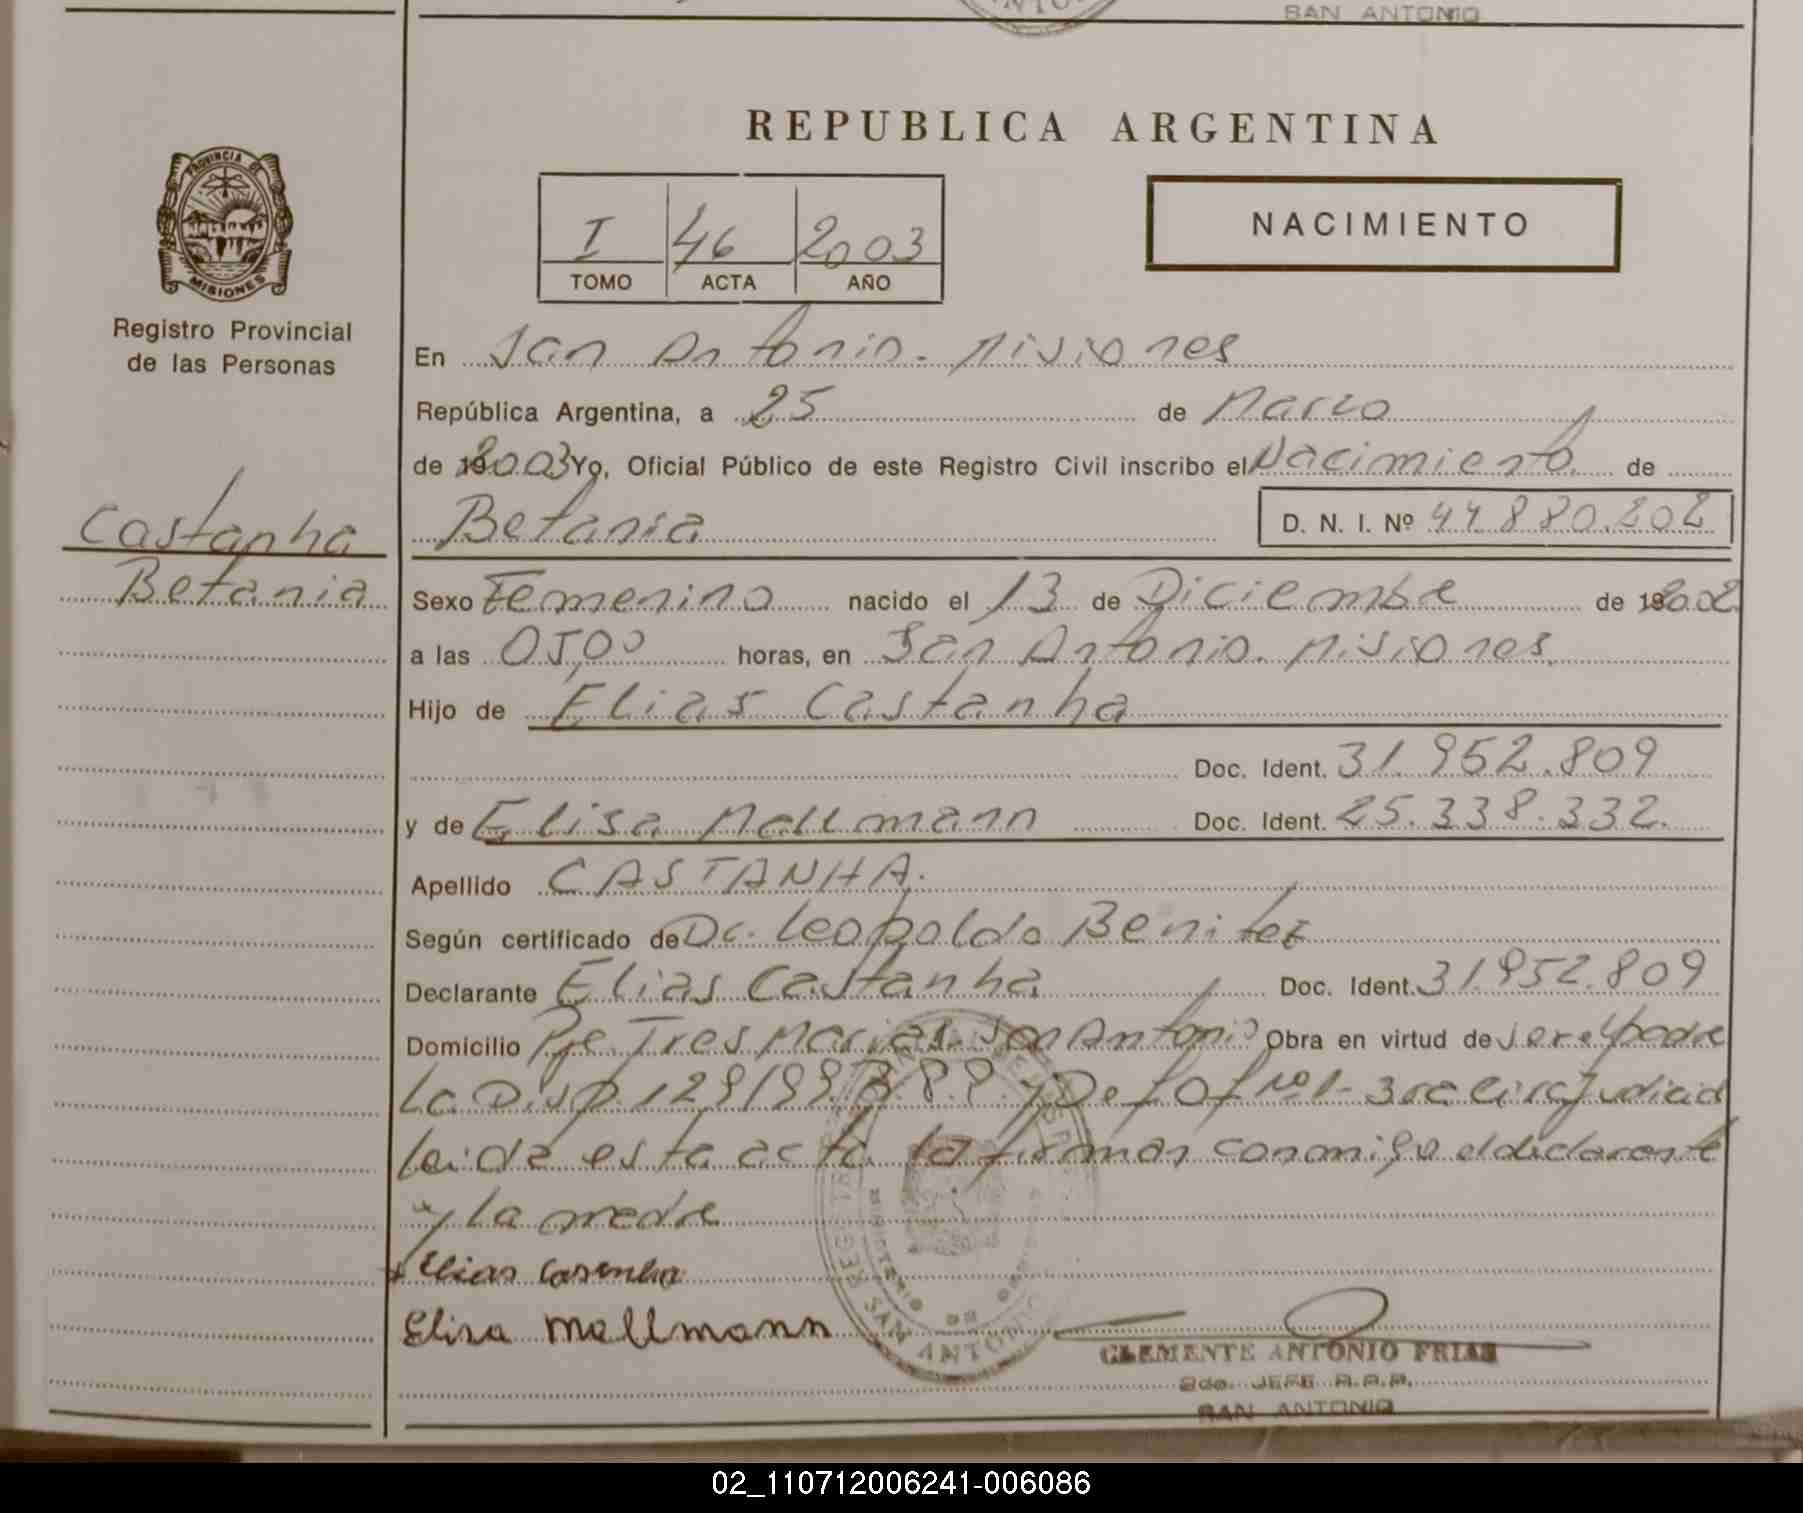 SAN ANTONIO
REPUBLICA ARGENTINA
PROVINCIA DE
MISIONES
Registro Provincial
de las Personas
I 46 2003
TOMO ACTA AÑO
NACIMIENTO
En San Antonio - Misiones
República Argentina, a 25 de Marzo
de 2003 Yo, Oficial Público de este Registro Civil inscribo el Nacimiento de
Castanha
Betania
Betania D. N. I. Nº 44.880.202
Sexo Femenino nacido el 13 de Diciembre de 2002
a las 05,00 horas, en San Antonio. Misiones.
Hijo de Elias Castanha
Doc. Ident. 31.952.809
y de Elisa Mallmann Doc. Ident. 25.338.332.
Apellido CASTANHA.
Según certificado de Dr. Leopoldo Benitez
Declarante Elias Castanha Doc. Ident. 31.952.809
Domicilio Pje. Tres Marias. San Antonio Obra en virtud de ser el padre
La Disp. 129/99. y Def Of Nº 1 - 3ra Circ Judicial
leida esta acta la firman conmigo el declarante
y la madre
Elias Casenha
Elisa Mallmann
SAN ANTONIO
CLEMENTE ANTONIO FRIAS
2do. JEFE R.P.P.
SAN ANTONIO
02_110712006241-006086